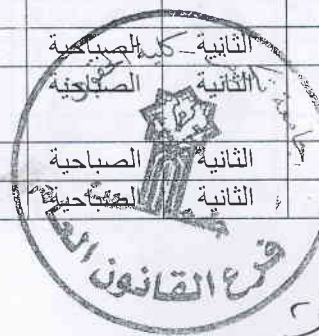 الثانية الصباحية
الثانية الصباحية
الثانية الصباحية
الثانية الصباحية
كلية الحقوق
فرع القانون العام